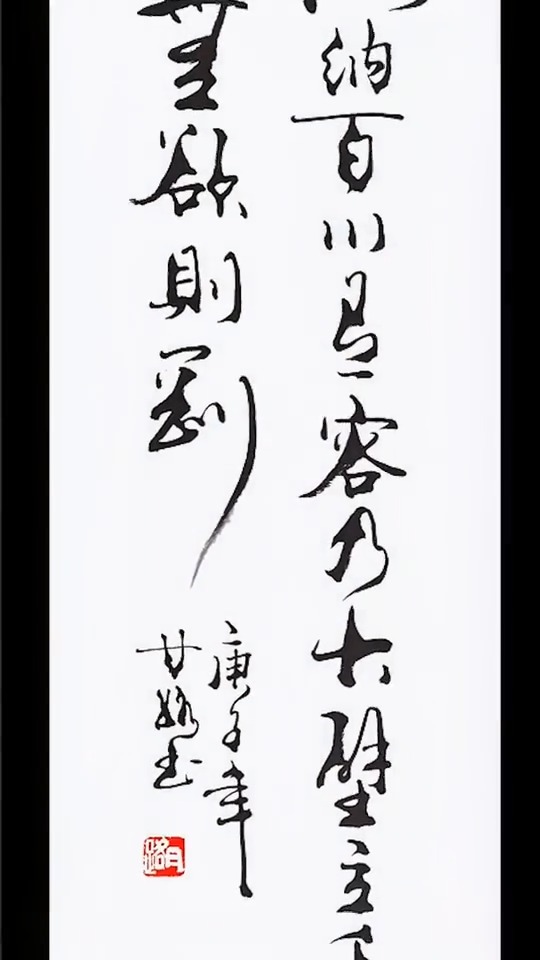 納百川有容乃大壁立
無欲則剛
庚子年
甘 书